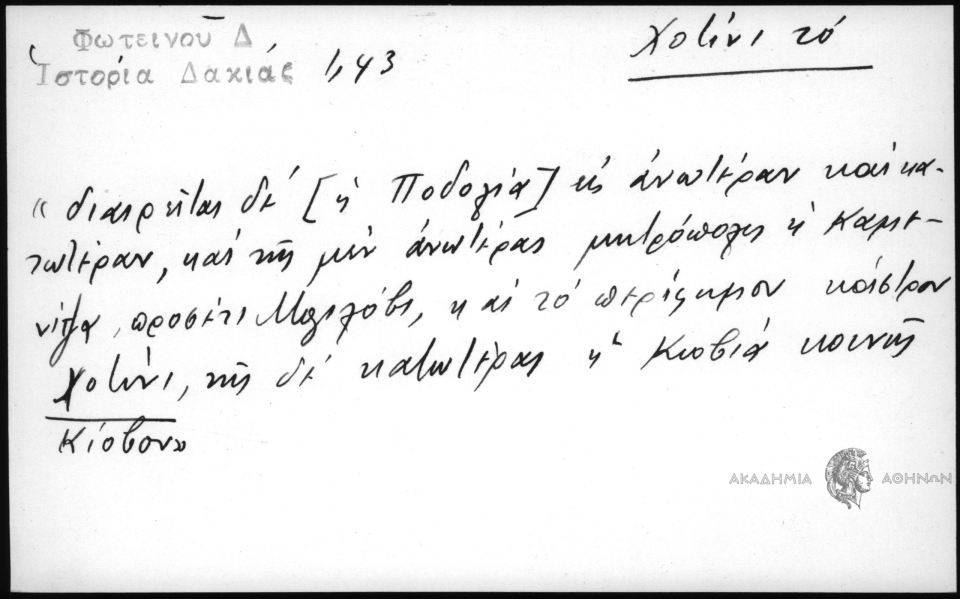 Φωτεινού Δ
Ἱστορία Δακίας 1,43
Χοτίνι τό
"διαιρεῖται δέ [ἡ Ποδολία] εἰς ἀνωτέραν καί κα-
τωτέραν, καί τῆς μέν ἀνωτέρας μητρόπολις ἡ Καμε-
νίτζα, προσέτι, καί τό περίφημον κάστρον
Χοτίνι, τῆς δέ κατωτέρας ἡ Κιοβία κοινῶς
Κίοβον"
ΑΚΑΔΗΜΙΑ ΑΘΗΝΩΝ